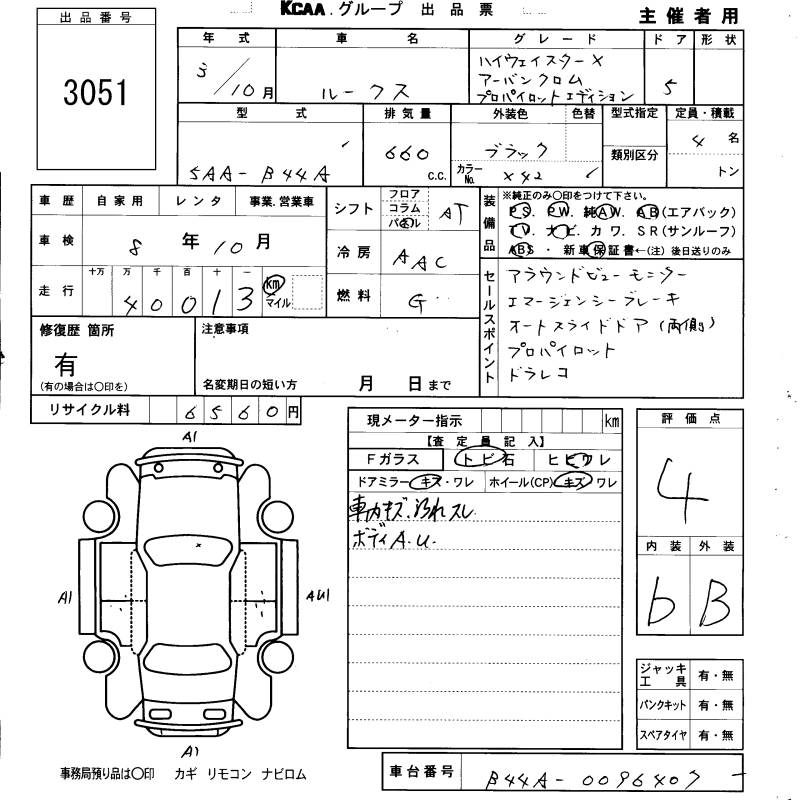 KCAA.グループ 出品票
主催者用
出品番号
3051
年式 車名 グレード ドア 形状
3/10月 ルークス ハイウェイスターX
アーバンクロム
プロパイロットエディション
5
型式 排気量 外装色 色替 型式指定 定員・積載
5AA-B44A 660 c.c. ブラック
カラーNo. X42
類別区分
4名
トン
車歴 自家用 レンタ 事業、営業車
車検 8年10月
走行 十万 万 千 百 十 一
40013 km マイル
シフト フロア コラム パネル AT
冷房 AAC
燃料 G
装備品 ※純正のみ〇印をつけて下さい。
PS. PW. 純AW. AB(エアバック)
TV. ナビ カワ. SR(サンルーフ)
ABS・新車保証書←(注)後日送りのみ
セールスポイント
アラウンドビューモニター
エマージェンシーブレーキ
オートスライドドア(両側)
プロパイロット
ドラレコ
修復歴 箇所
有
(有の場合は〇印を)
注意事項
名変期日の短い方 月 日まで
リサイクル料 6560円
現メーター指示 km
【査定員記入】
Fガラス トビ石 ヒビワレ
ドアミラー キズ・ワレ ホイール(CP) キズ ワレ
車内キズ、汚れスレ
ボディA.U.
評価点
4
内装 外装
b B
ジャッキ工具 有・無
パンクキット 有・無
スペアタイヤ 有・無
A1
A1
AU1
A1
事務局預り品は〇印 カギ リモコン ナビロム
車台番号 B44A-0096407